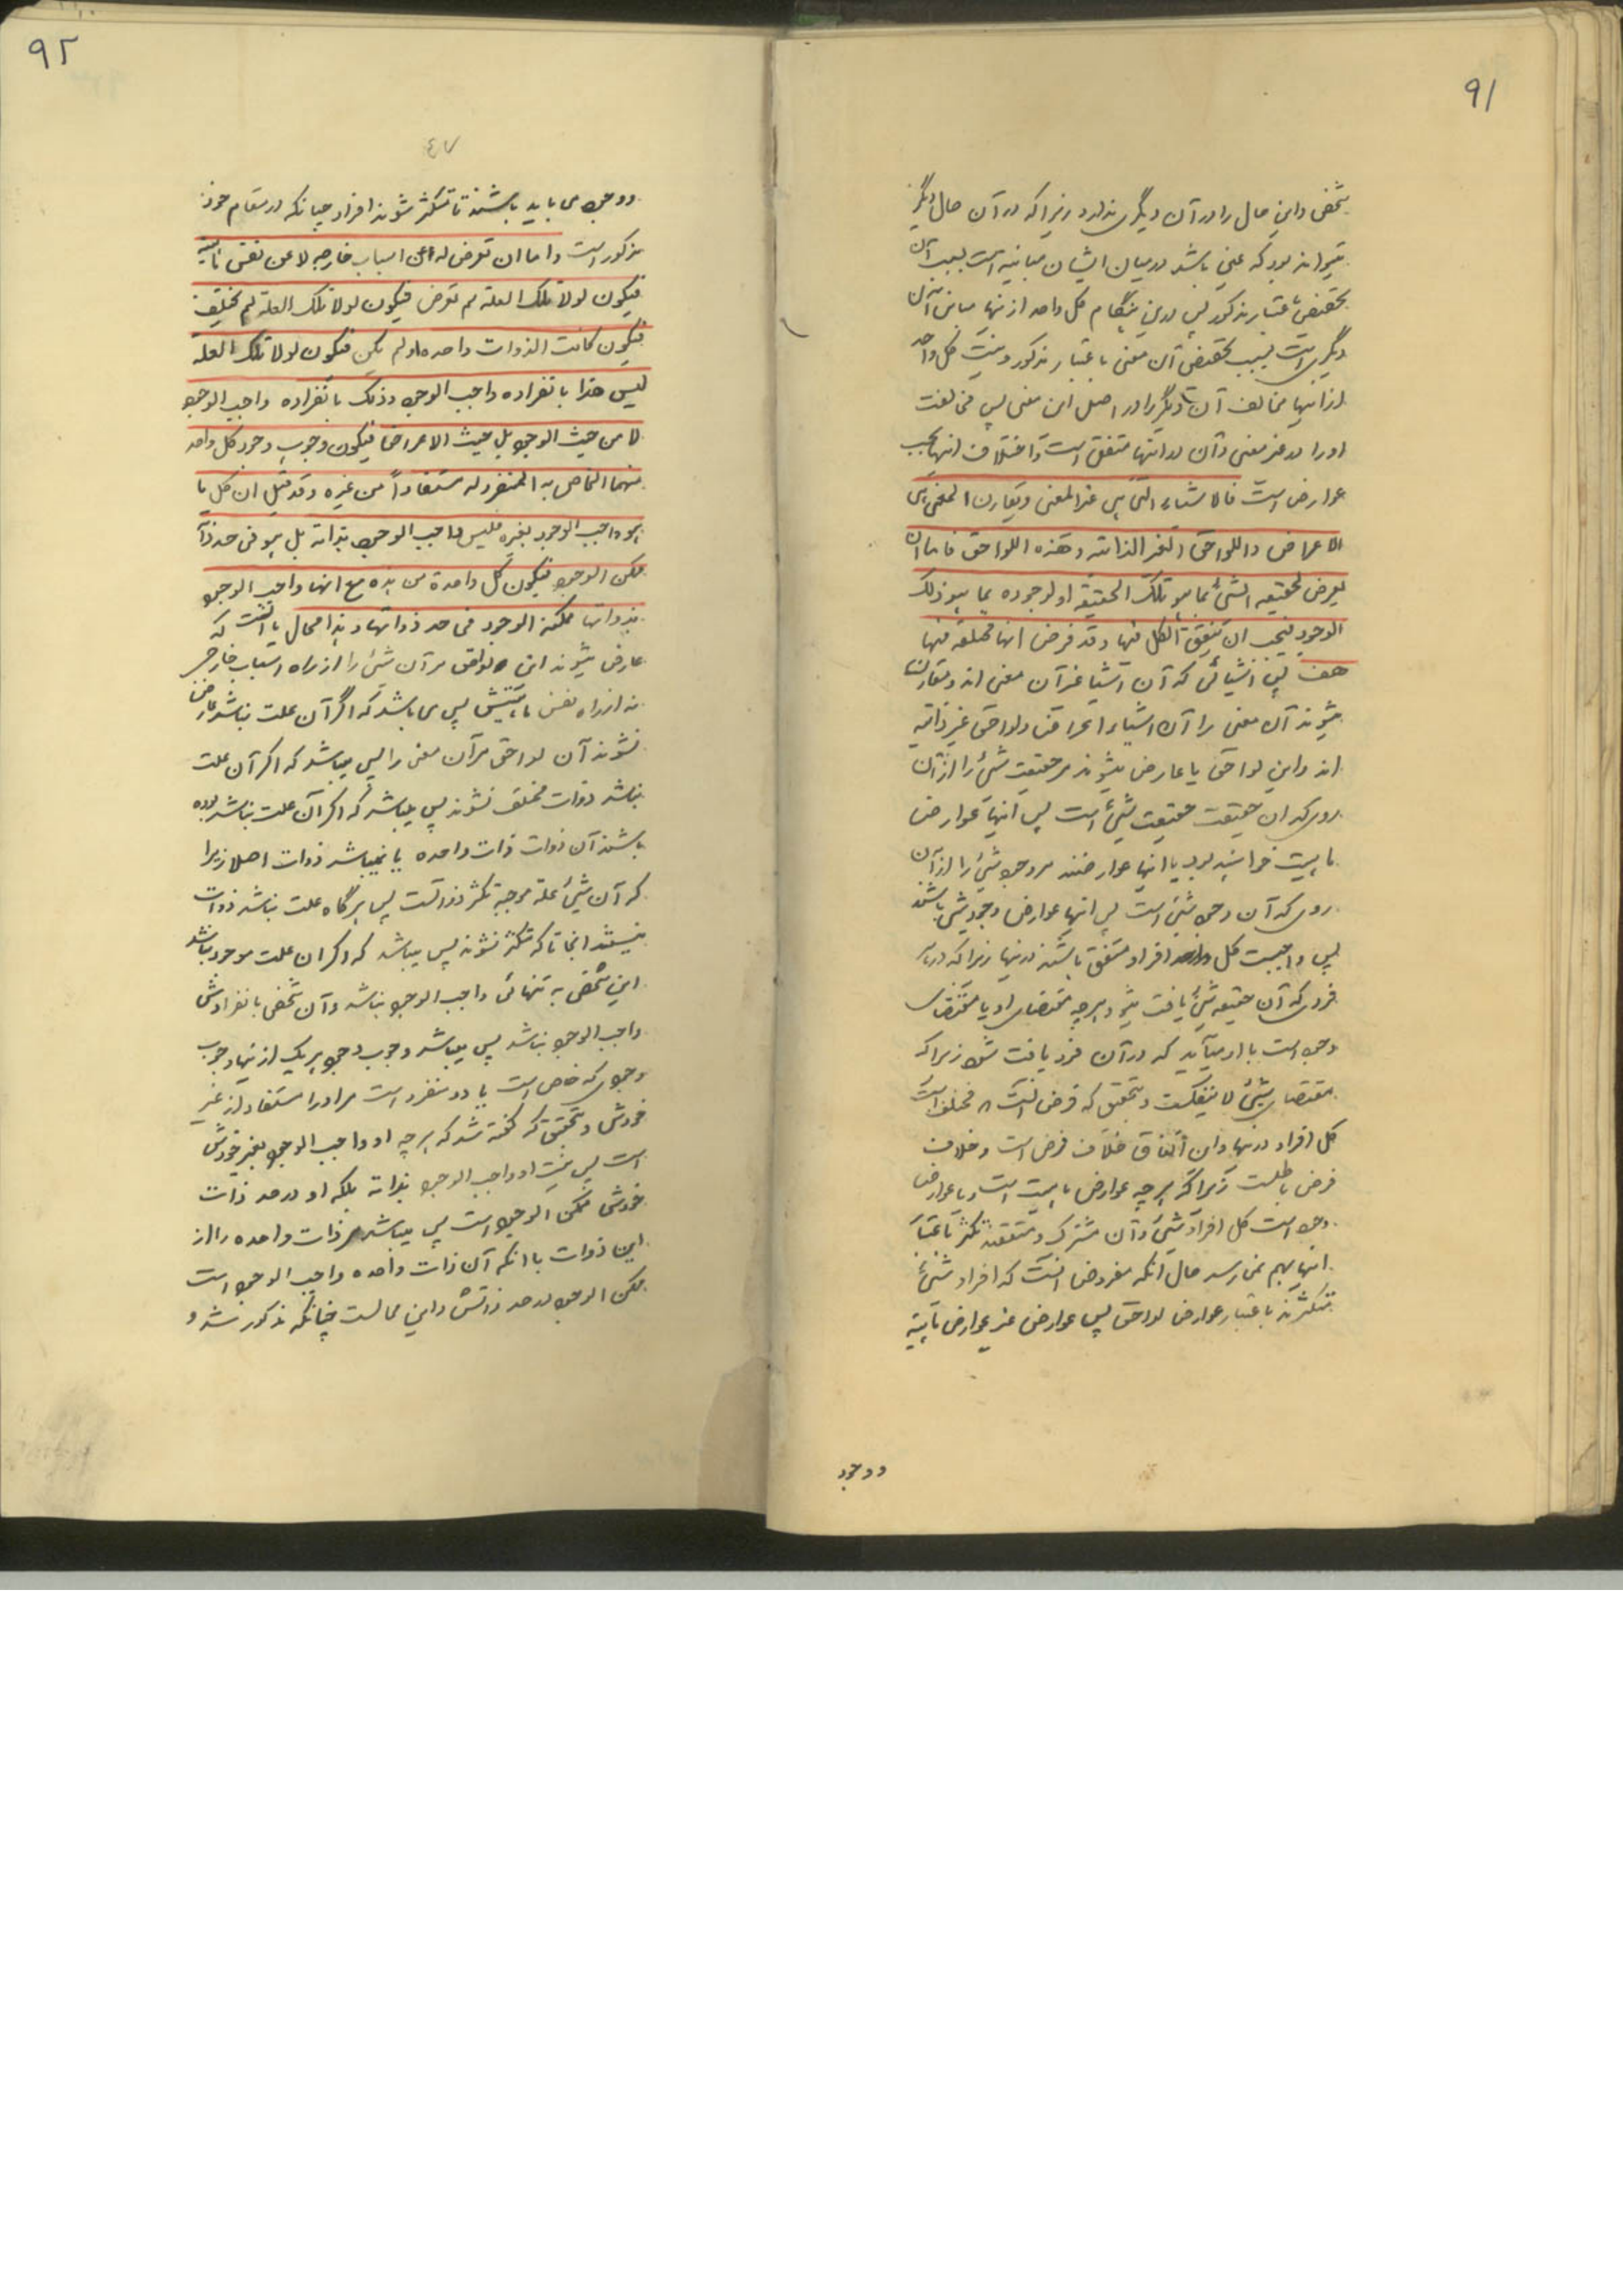 ۹۱
شخص و این حال را در آن دیگری ندارد زیرا که در آن حال دیگر
میتواند بود که عینی باشد در میان ایشان مباینه است بسبب آن
تخصص باعتبار مذکور پس درین هنگام کل واحد ازینها مباین آن
دیگری است بسبب تخصص آن معنی باعتبار مذکور و نیست کل واحد
ازاینها مخالف آن دیگر را در اصل این معنی پس مخالفت
او را در غیر معنی و آن در اینها متفق است و اختلاف اینها بحسب
عوارض است فالاشیاء التی هی غیر المعنی و یقارن المعنی هی
الاعراض و اللواحق الغیر الذاتیه و هذه اللواحق فاما ان
یعرض لحقیقه الشئ بما هو تلک الحقیقه او لوجوده بما هو ذلک
الوجود فیجب ان یتفق الکل فیها و قد فرض انها مختلفه فیها
هف پس اشیائی که آن اشیا غیر آن معنی اند و مقارن
میشوند آن معنی را آن اشیاء اعراض و لواحق غیر ذاتیه
اند و این لواحق یا عارض میشوند مر حقیقت شئ را از آن
روی که ان حقیقت حقیقت شئ است پس اینها عوارض
ماهیت خواهند بود یا اینها عوارضند مر وجود شئ را از آن
روی که آن وجود شئ است پس اینها عوارض وجود شئ باشند
پس واجبست کل واحد افراد متفق باشند درینها زیرا که در هر
فردی که آن حقیقه شئ یافت شود هرچه مقتضای او یا مقتضای
وجود است با او میآید که در آن فرد یافت شود زیرا که
مقتضای شئ لا ینفکست و بتحقیق که فرض انست که مختلف است
کل افراد درینها و ان اتفاق خلاف فرض است و خلاف
فرض باطلست زیرا که هرچه عوارض ماهیت است و یا عوارض
وجود است کل افراد شئ در آن مشترک و متفقند تکثر باعتبار
اینها بهم نمیرسد حال آنکه مفروض انست که افراد شئ
متکثرند باعتبار عوارض لواحق پس عوارض غیر عوارض ماهیة
و وجود
۹۲
٤٧
و وجود می باید باشند تا متکثر شوند افراد چنانکه در مقام خود
مذکور است و اما ان تعرض له عن اسباب خارجه لا عن نفس ماهیته
فیکون لولا تلک العله لم تعرض فیکون لولا تلک العله لم تختلف
فیکون کانت الذوات واحده او لم یکن فیکون لولا تلک العله
لیس هذا بانفراده واجب الوجود و ذلک بانفراده واجب الوجود
لا من حیث الوجود بل حیث الاعراض فیکون وجوب وجود کل واحد
منهما الخاص به المنفرد له مستفاداً من غیره و قد قیل ان کل ما
هو واجب الوجود بغیره فلیس واجب الوجود بذاته بل هو فی حد ذاته
ممکن الوجود فیکون کل واحدة من هذه مع انها واجب الوجود
بذواتها ممکنه الوجود فی حد ذواتها و هذا محال یا انست که
عارض میشوند این لواحق مر آن شئ را از راه اسباب خارجی
نه از راه نفس ماهیتش پس می باشد که اگر آن علت نباشد عارض
نشوند آن لواحق مر آن معنی را پس میباشد که اگر آن علت
نباشد ذوات مختلف نشوند پس میباشد که اگر آن علت نباشد بوده
باشند آن ذوات ذات واحده یا نمیباشد ذوات اصلا زیرا
که آن شئ علة موجبة تکثر ذواتست پس هرگاه علت نباشد ذوات
نیستند انجا تا که متکثر نشوند پس میباشد که اگر ان علت موجود نباشد
این شخص به تنهائی واجب الوجود نباشد و آن شخص بانفرادش
واجب الوجود نباشد پس میباشد وجوب وجود هر یک ازینها وجوب
وجودی که خاص است با او و منفرد است مر او را مستفاد از غیر
خودش و بتحقیق که گفته شد که هرچه او واجب الوجود بغیر خودش
است پس نیست او واجب الوجود بذاته بلکه او در حد ذات
خودش ممکن الوجود است پس میباشد هر ذات واحده را از
این ذوات با آنکه آن ذات واحده واجب الوجود است
ممکن الوجود در حد ذاتش و این محالست چنانکه مذکور شد و